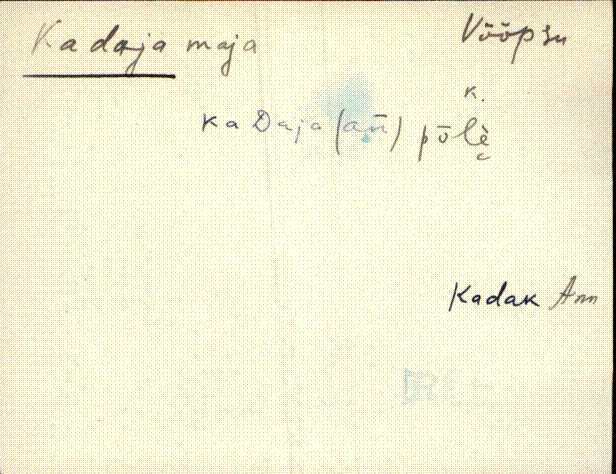 Kadaja maja
Vööpsu
k.
kaDaja (añ) põlè̬
Kadak Ann